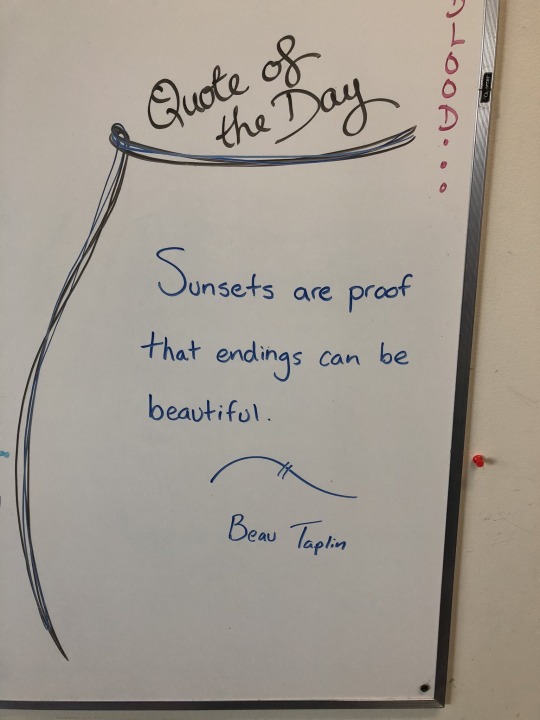 Quote of
the Day
LOOD...
Sunsets are proof
that endings can be
beautiful.
Beau Taplin